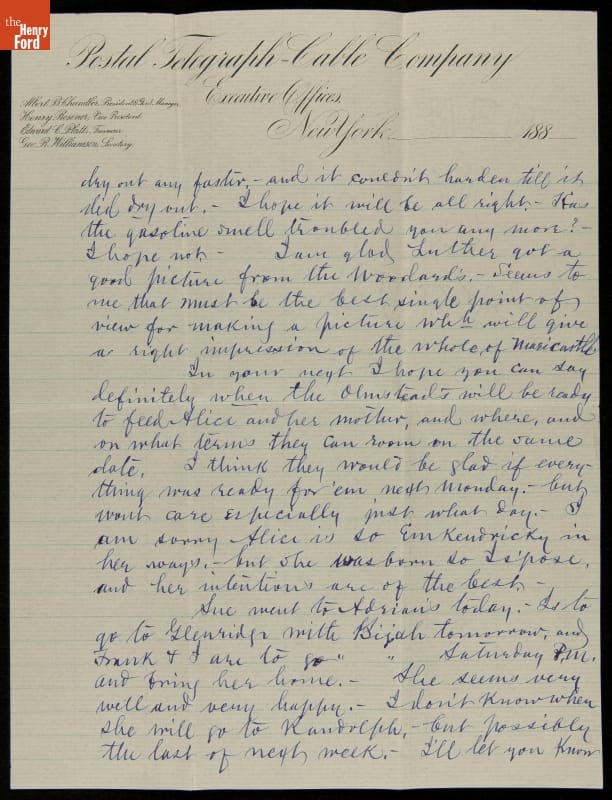 the
Henry
Ford
Postal Telegraph-Cable Company
Executive Offices,
Albert B. Chandler, President & Genl. Manager,
Henry Rosener, Vice President
Edward C. Platt, Treasurer
Geo. R. Williamson, Secretary.
New York, 188
dry out any faster.- and it couldn't harden till it
did dry out.- I hope it will be all right.- Has
the gasoline smell troubled you any more?-
I hope not- I am glad Luther got a
good picture from the Woodard's.- Seems to
me that must be the best single point of
view for making a picture whh will give
a right impression of the whole of Maricastle
In your next I hope you can say
definitely when the Olmsteads will be ready
to feed Alice and her mother, and where, and
on what terms they can room on the same
date. I think they would be glad if every-
thing was ready for 'em next Monday.- but
wont care especially just what day.- I
am sorry Alice is so EmKendricky in
her ways.- but she was born so I s'pose,
and her intentions are of the best.-
She went to Adrian's today.- Is to
go to Glenridge with Bijah tomorrow, and
Frank & I are to go " " Saturday P.M.
and bring her home.- She seems very
well and very happy.- I don't know when
she will go to Randolph.- but possibly
the last of next week.- I'll let you know